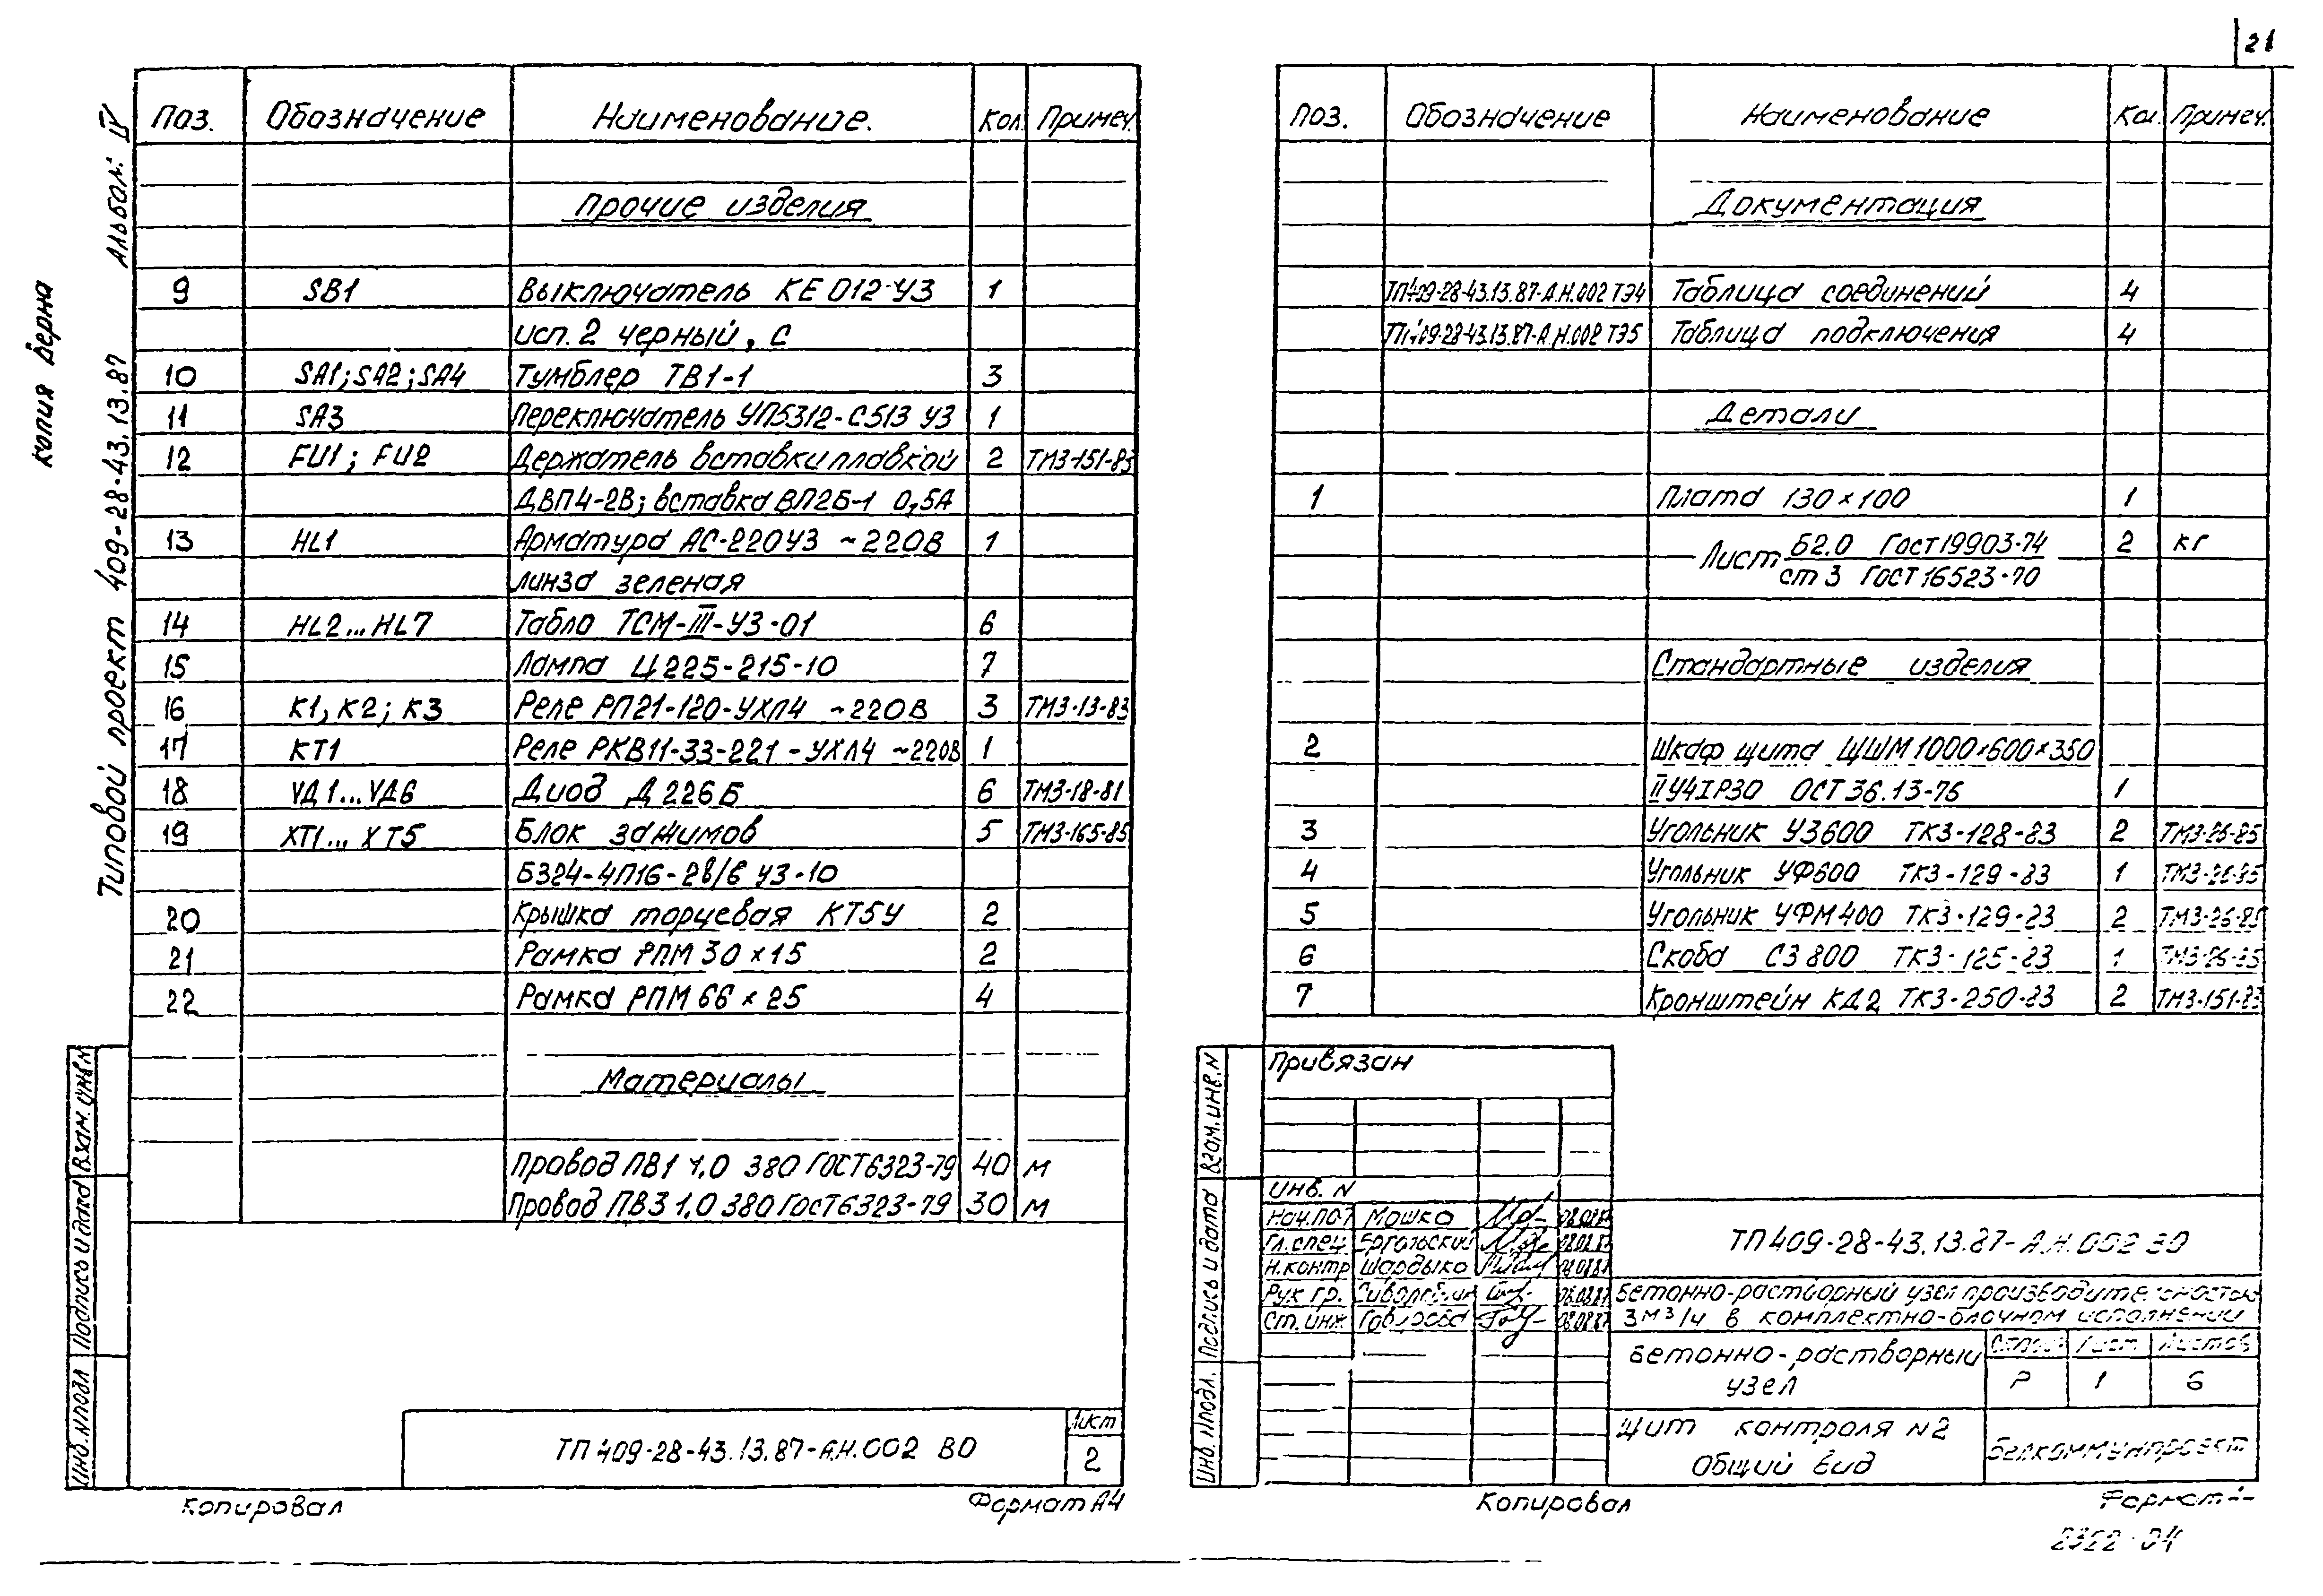 21
копия верна
Типовой проект 409-28-43.13.87 Альбом IV
Поз. Обозначение Наименование. Кол. Примеч.
Прочие изделия
9 SB1 Выключатель КЕ 012-У3 1
исп. 2 черный, С
10 SA1; SA2; SA4 Тумблер ТВ1-1 3
11 SA3 Переключатель УП5312-С513 У3 1
12 FU1; FU2 Держатель вставки плавкой 2 ТМ3-151-83
ДВП4-2В; вставка ВП2Б-1 0,5А
13 HL1 Арматура АС-220У3 ~220В 1
линза зеленая
14 HL2...HL7 Табло ТСМ-III-У3-01 6
15 Лампа Ц225-215-10 7
16 К1, К2; К3 Реле РП21-120-УХЛ4 ~220В 3 ТМ3-13-83
17 КТ1 Реле РКВ11-33-221-УХЛ4 ~220В 1
18 VД1...VД6 Диод Д226Б 6 ТМ3-18-81
19 ХТ1...ХТ5 Блок зажимов 5 ТМ3-165-85
БЗ24-4П16-2В/В У3-10
20 Крышка торцевая КТ5У 2
21 Рамка РПМ 30×15 2
22 Рамка РПМ 66×25 4
Материалы
Провод ПВ1 1,0 380 ГОСТ 6323-79 40 м
Провод ПВ3 1,0 380 ГОСТ 6323-79 30 м
Инв. N подл Подпись и дата Взам. инв. N
ТП 409-28-43.13.87-А.Н.002 ВО
Лист
2
Копировал Формат А4
Поз. Обозначение Наименование Кол. Примеч.
Документация
ТП409-28-43.13.87-А.Н.002 ТЭ4 Таблица соединений 4
ТП409-28-43.13.87-А.Н.002 ТЭ5 Таблица подключения 4
Детали
1 Плата 130×100 1
Лист Б2.0 ГОСТ 19903-74 2 кг
ст 3 ГОСТ 16523-70
Стандартные изделия
2 Шкаф щита ЩШМ 1000×600×350
II У4 IP30 ОСТ 36.13-76 1
3 Угольник У3600 ТК3-128-83 2 ТМ3-26-85
4 Угольник УФ600 ТК3-129-83 1 ТМ3-26-85
5 Угольник УФМ400 ТК3-129-83 2 ТМ3-26-85
6 Скоба С3 800 ТК3-125-83 1 ТМ3-26-85
7 Кронштейн КД2 ТК3-250-83 2 ТМ3-151-83
Инв. N подл. Подпись и дата Взам. инв. N
Привязан
Инв. N
Нач. Мошко 08.08.87
Гл. спец 08.08.87
Н. контр Шардыко 08.08.87
Рук гр. 08.08.87
Ст. инж 08.08.87
ТП 409-28-43.13.87-А.Н.002 ВО
Бетонно-растворный узел производительностью
3м³/ч в комплектно-блочном исполнении
Бетонно-растворный
узел
Стадия Лист Листов
Р 1 6
Щит контроля N2
Общий вид
Белкоммунпроект
Копировал Формат